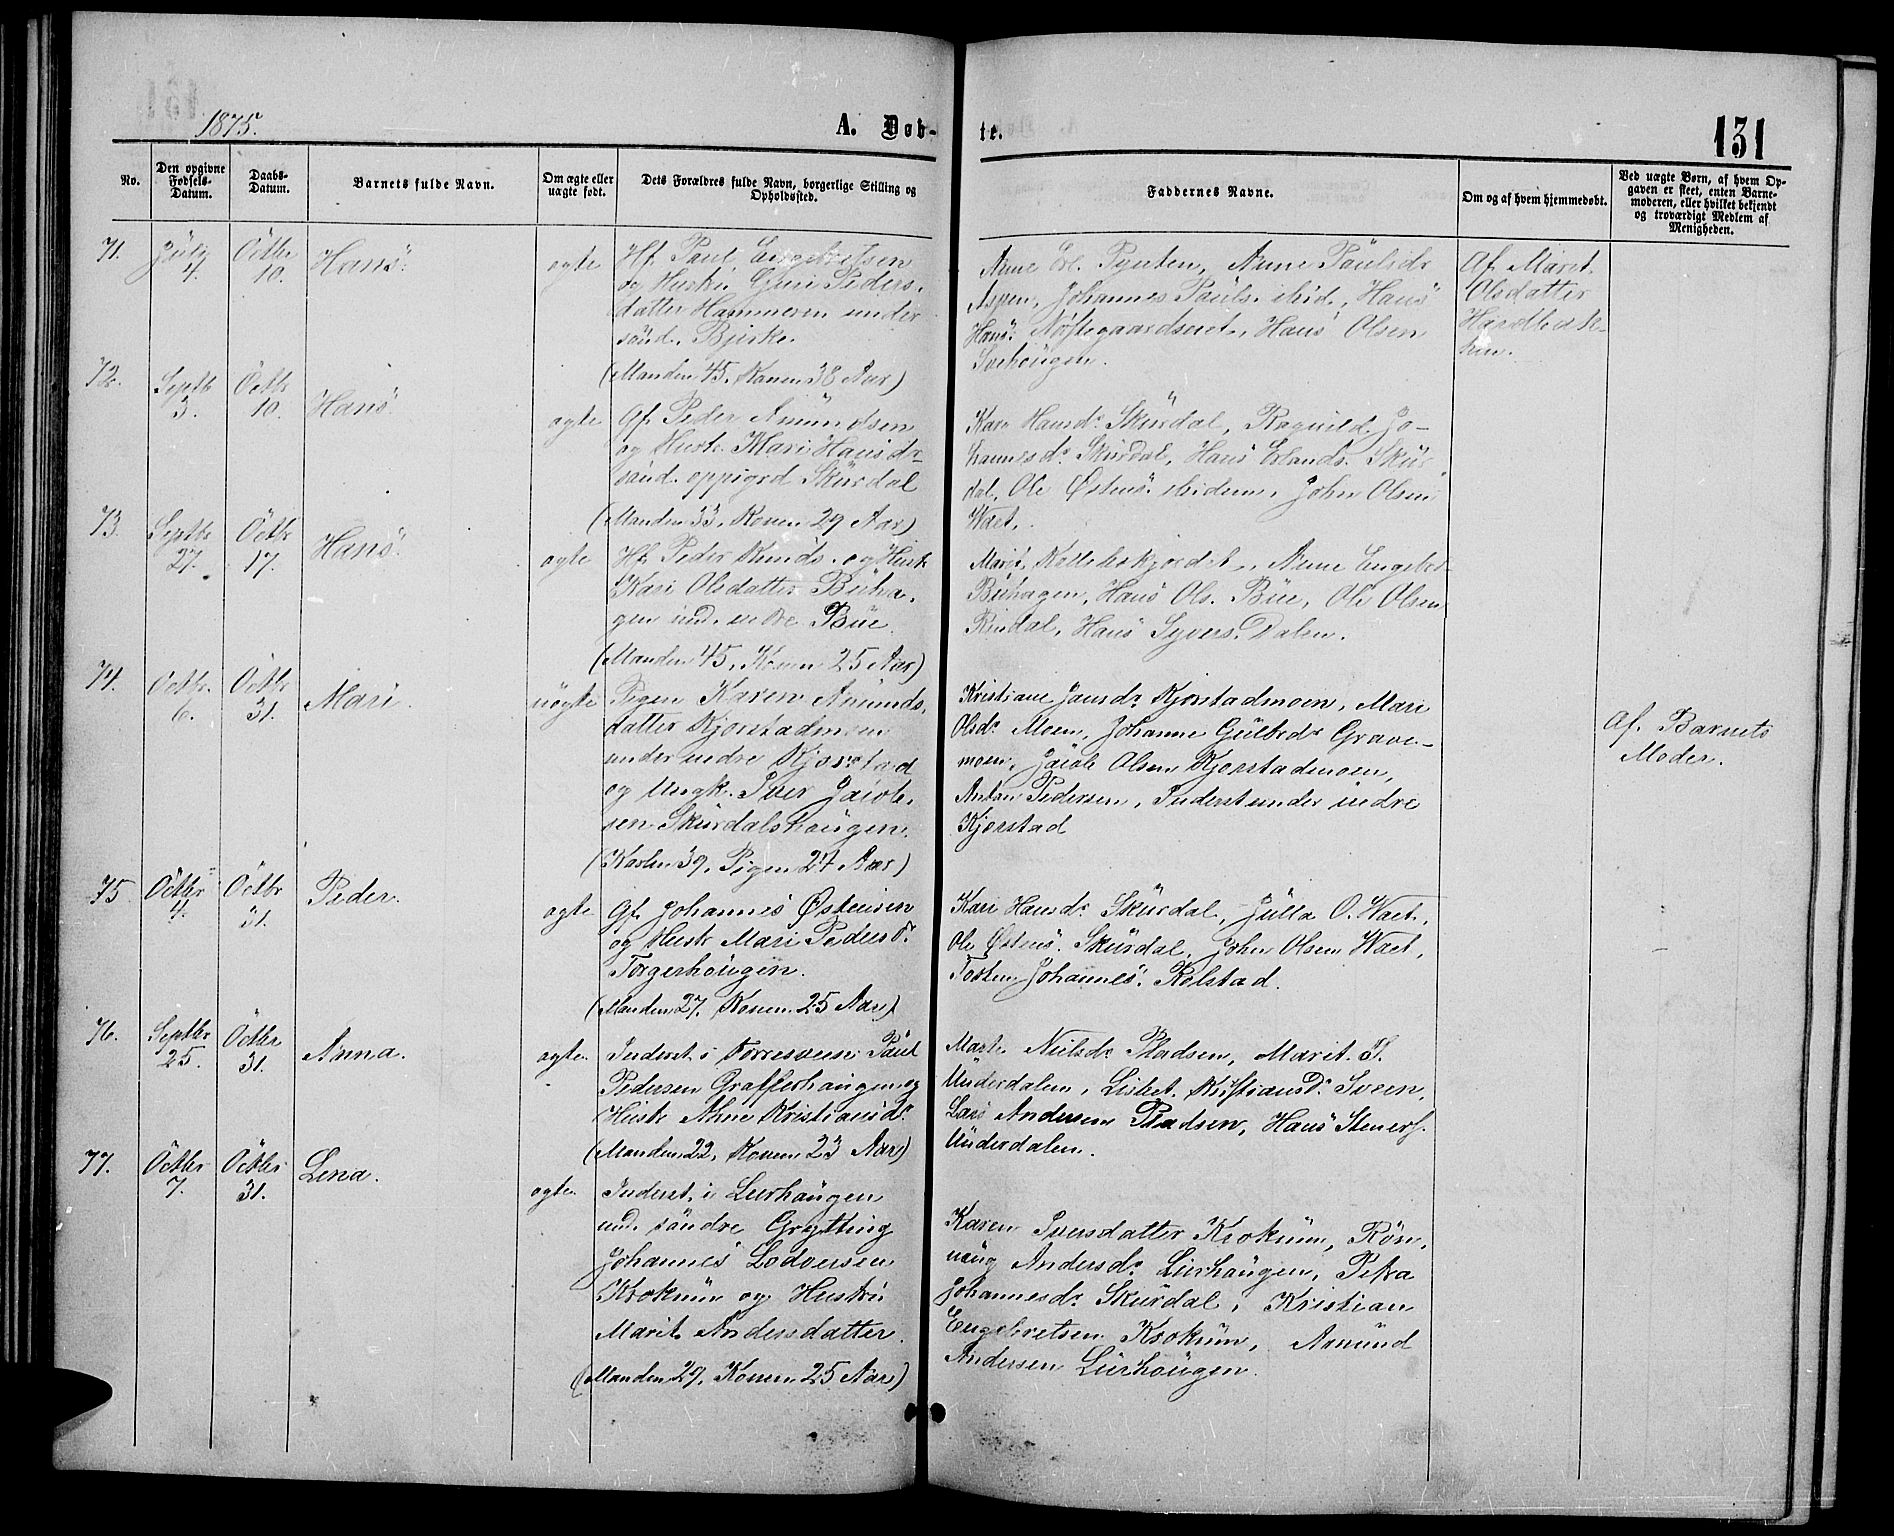 1875.
A. Døb-
te.
131
No.
Den opgivne
Fødsels-
Datum.
Daabs-
Datum.
Barnets fulde Navn.
Om ægte eller
uægte født.
Dets Forældres fulde Navn, borgerlige Stilling og
Opholdssted.
Faddernes Navne.
Om og af hvem hjemmedøbt.
Ved uægte Børn, af hvem Op-
gaven er skeet, enten Barne-
moderen, eller hvilket bekjendt
og troværdigt Medlem af
Menigheden.
71.
July
4.
Octbr
10.
Hans.
ægte
Hf. Paul Engebretsen
og Hustru Guri Peders-
datter Hammeren under
sønd. Bjerke.
(Manden 45, Konen 38 Aar)
Anne Erl. Pynten, Anne Paulsdr
Aspen, Johannes Pauls. ibid., Hans
Hans. Nøstegaardseret, Hans Olsen
Svehougen.
Af Marit
Olsdatter
72.
Septb
3.
Octbr
10.
Hans
ægte
Gf. Peder Amundsen
og Hustr. Mari Hansdr
sønd. oppigrd Skurdal
(Manden 33, Konen 29 Aar)
Kari Hansdr Skurdal, Ragnild Jo-
hannesdr Skurdal, Hans Erlands. Skur-
dal, Ole Østens. ibidem, John Olsen
Waet.
73.
Septbr
27.
Octbr
17.
Hans.
ægte
Hf. Peder Knuds. og Hustr
Kari Olsdatter Buha-
gen und. nedre Bue
(Manden 45, Konen 25 Aar)
Marit Kollebekjordet, Anne Engebr.
Buhagen, Hans Ols. Bue, Ole Olsen
Rindal, Hans Syvers. Dalen.
74.
Octbr.
6.
Octbr
31.
Mari.
uægte
Pigen Karen Amunds-
datter Kjorstadmoen
under nedre Kjorstad
og Ungk. Iver Jacob-
sen Skurdalshougen.
(Karlen 39, Pigen 27 Aar)
Kristiane Jansdr Kjorstadmoen, Mari
Olsdr Moen, Johanne Gulbdr Grave-
moen, Jacob Olsen Kjorstadmoen,
Anton Pedersen, Inderst under nedre
Kjorstad
Af Barnets
Moder.
75.
Octbr
4.
Octbr
31.
Peder.
ægte
Gf. Johannes Østensen
og Hustr Mari Pedersdr
Torgerhougen.
(Manden 27, Konen 25 Aar)
Kari Hansdr Skurdal, Julla O. Waet,
Ole Østens. Skurdal, John Olsen Waet,
Tosten Johannes. Kolstad.
76.
Septbr
25.
Octbr
31.
Anna.
ægte
Inderst i Torresveen Paul
Pedersen Grafferhaugen og
Hustr Ahne Kristiansdr
(Manden 22, Konen 23 Aar)
Marte Nielsdr Pladsen, Marit T.
Underdalen, Lisbet Kristiansdr Sveen,
Lars Andersen Pladsen, Hans Steners.
Underdalen.
77.
Octbr
7.
Octbr
31.
Lena.
ægte
Inderst i Lurhaugen
und. søndre Grytting
Johannes Lodversen
Krokum og Hustru
Marit Andersdatter.
(Manden 29, Konen 25 Aar)
Karen Iversdatter Krokum, Røn-
naug Andersdr Lurhaugen, Petra
Johannesdr Skurdal, Kristian
Engebretsen Krokum, Amund
Andersen Lurhougen.